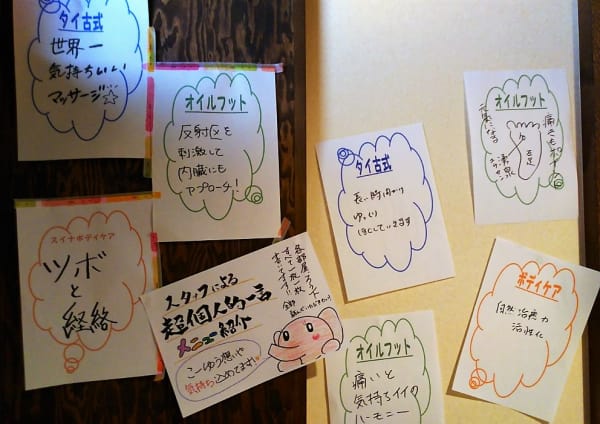 タイ古式
世界一
気持ちいい
マッサージ☆
オイルフット
反射区を
刺激して
内臓にも
アプローチ!
スイナボディケア
ツボ
と
経絡
スタッフによる
超個人的一言
メニュー紹介
こーゆう想いや
気持ち込めてます!
各部屋、フット
すべて一枚一枚
タイ古式
長い時間かけ
ゆっくり
ほぐしていきます
オイルフット
痛いと
気持ちイイの
ハーモニー
オイルフット
元気になる
ボディケア
自然治癒力
活性化